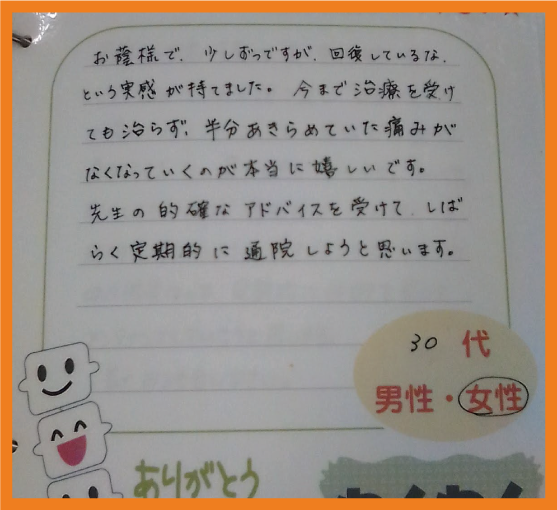 お蔭様で、少しずつですが、回復しているな、
という実感が持てました。今まで治療を受け
ても治らず、半分あきらめていた痛みが
なくなっていくのが本当に嬉しいです。
先生の的確なアドバイスを受けて、しば
らく定期的に通院しようと思います。
30代
男性・女性
ありがとう